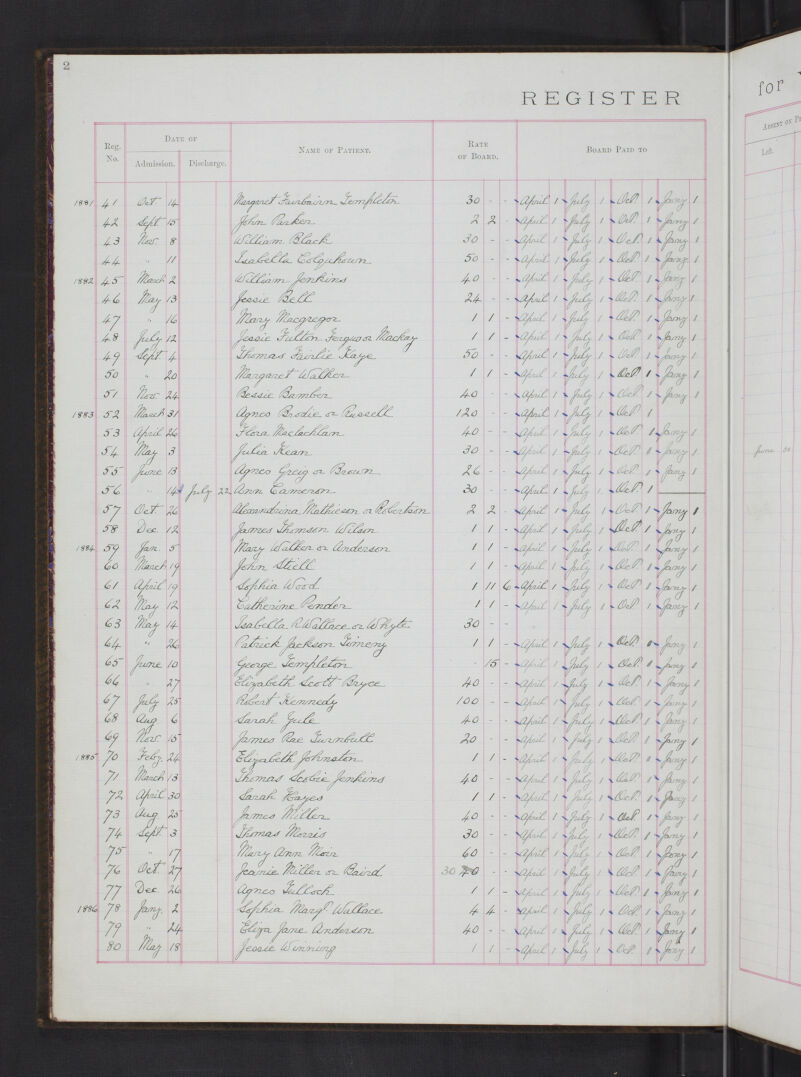 2
REGISTER
for
Reg. No. DATE OF Admission. Discharge. NAME OF PATIENT. RATE OF BOARD. BOARD PAID TO
Left.
1881 41 Oct 14 Margaret Fairbairn Templeton 30 - - April 1 July 1 Oct 1 Jany 1
42 Sept 15 John Parker 2 2 - April 1 July 1 Oct 1 Jany 1
43 Nov 8 William Black 30 - - April 1 July 1 Oct 1 Jany 1
44 " 11 Isabella Colquhoun 50 - - April 1 July 1 Oct 1 Jany 1
1882 45 March 2 William Jenkins 40 - - April 1 July 1 Oct 1 Jany 1
46 May 13 Jessie Bell 24 - - April 1 July 1 Oct 1 Jany 1
47 " 16 Mary Macgregor 1 1 - April 1 July 1 Oct 1 Jany 1
48 July 12 Jessie Fulton Ferguson Mackay 1 1 - April 1 July 1 Oct 1 Jany 1
49 Sept 4 Thomas Fairlie Kaye 50 - - April 1 July 1 Oct 1 Jany 1
50 " 20 Margaret Walker 1 1 - April 1 July 1 Oct 1 Jany 1
51 Nov 24 Bessie Bamber 40 - - April 1 July 1 Oct 1 Jany 1
1883 52 March 31 Agnes Brodie or Russell 120 - - April 1 July 1 Oct 1
53 April 26 Flora Maclachlan 40 - - April 1 July 1 Oct 1 Jany 1
54 May 3 Julia Kean 30 - - April 1 July 1 Oct 1 Jany 1
June 30
55 June 13 Agnes Greig or Brown 26 - - April 1 July 1 Oct 1 Jany 1
56 " 14 July 22 Ann Cameron 30 - - April 1 July 1 Oct 1
57 Oct 26 Alexandrina Mathieson or Robertson 2 2 - April 1 July 1 Oct 1 Jany 1
58 Dec 12 James Thomson Wilson 1 1 - April 1 July 1 Oct 1 Jany 1
1884 59 Jan 5 Mary Walker or Anderson 1 1 - April 1 July 1 Oct 1 Jany 1
60 March 19 John Stiell 1 1 - April 1 July 1 Oct 1 Jany 1
61 April 19 Sophia Wood 1 11 6 April 1 July 1 Oct 1 Jany 1
62 May 12 Catherine Pender 1 1 - April 1 July 1 Oct 1 Jany 1
63 May 14 Isabella R Wallace or Whyte 30 - -
64 " 26 Patrick Jackson Tomeny 1 1 - April 1 July 1 Oct 1 Jany 1
65 June 10 George Templeton - 15 - April 1 July 1 Oct 1 Jany 1
66 " 27 Elizabeth Scott Bryce 40 - - April 1 July 1 Oct 1 Jany 1
67 July 25 Robert Kennedy 100 - - April 1 July 1 Oct 1 Jany 1
68 Aug 6 Sarah Yule 40 - - April 1 July 1 Oct 1 Jany 1
69 Nov 15 James Rae Turnbull 20 - - April 1 July 1 Oct 1 Jany 1
1885 70 Feby 24 Elizabeth Johnston 1 1 - April 1 July 1 Oct 1 Jany 1
71 March 13 Thomas Scobie Jenkins 40 - - April 1 July 1 Oct 1 Jany 1
72 April 30 Sarah Hayes 1 1 - April 1 July 1 Oct 1 Jany 1
73 Aug 25 James Miller 40 - - April 1 July 1 Oct 1 Jany 1
74 Sept 3 Thomas Morris 30 - - April 1 July 1 Oct 1 Jany 1
75 17 Mary Ann Moir 60 - - April 1 July 1 Oct 1 Jany 1
76 Oct 27 Jeanie Miller or Baird 30 - - April 1 July 1 Oct 1 Jany 1
77 Dec 26 Agnes Tulloch 1 1 - April 1 July 1 Oct 1 Jany 1
1886 78 Jany 2 Sophia Margt Wallace 4 4 - April 1 July 1 Oct 1 Jany 1
79 " 24 Eliza Jane Anderson 40 - - April 1 July 1 Oct 1 Jany 1
80 May 18 Jessie Winning 1 1 - April 1 July 1 Oct 1 Jany 1